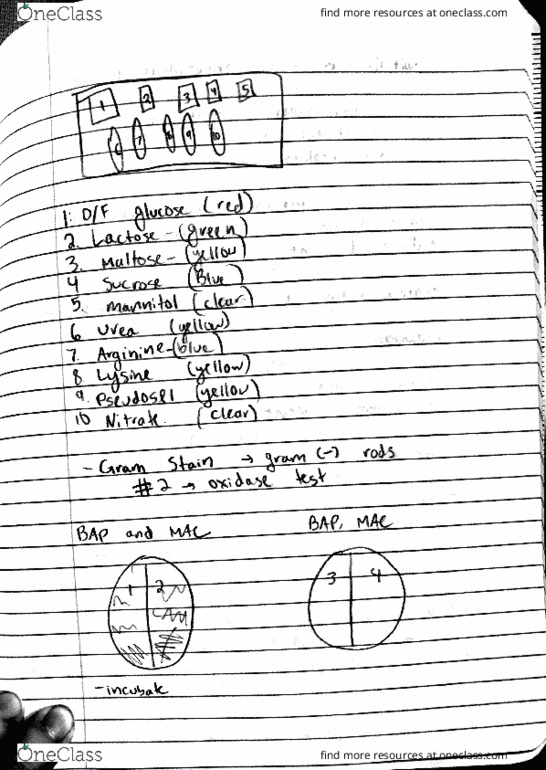 OneClass
find more resources at oneclass.com
1 2 3 4 5
6 7 8 9 10
1. O/F glucose (red)
2. Lactose - (green)
3. Maltose - (yellow)
4 Sucrose (Blue)
5. mannitol (clear)
6 Urea (yellow)
7. Arginine - (blue)
8 Lysine (yellow)
9. Pseudosel (yellow)
10 Nitrate. (clear)
- Gram Stain → gram (-) rods
#2 → oxidase test
BAP and MAC
BAP, MAC
1 2
3 4
- incubate
OneClass
find more resources at oneclass.com